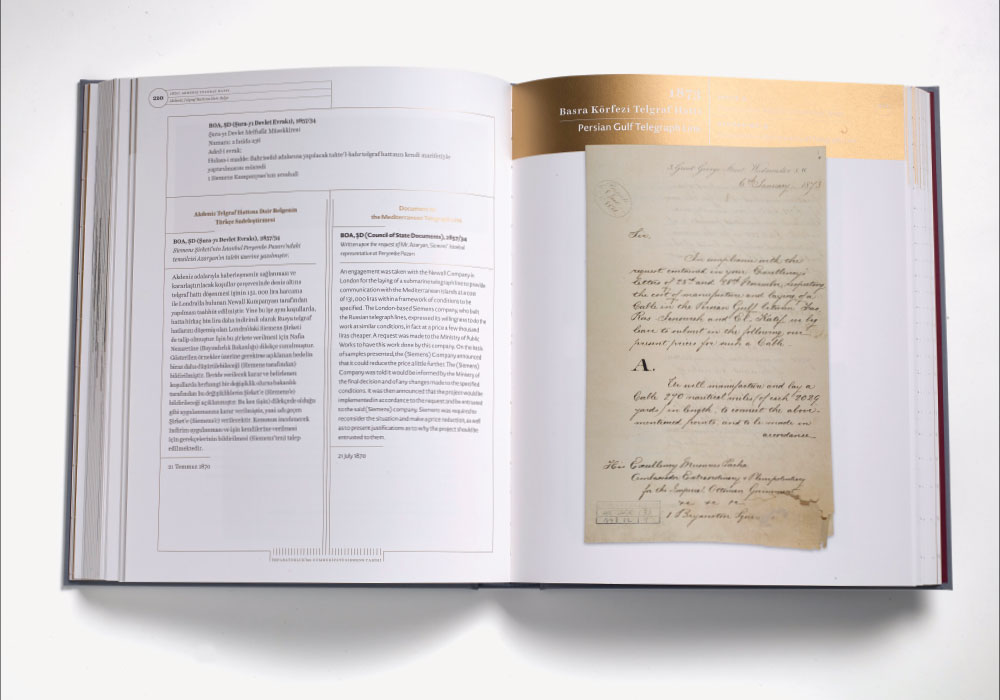 220
Akdeniz Telgraf Hattına Dair Belge
BOA, ŞD (Şura-yı Devlet Evrakı), 1857/34
Şura-yı Devlet Mülhakâtı Müzekkiresi
Numara:
Aded-i evrak:
Hulasa-i madde: Bahr-i sefid adalarına yapılacak tahte'l-bahr telgraf hattının kendi marifetiyle
yaptırılmasını
Siemens Kumpanyası'nın
Akdeniz Telgraf Hattına Dair Belgenin
Türkçe Sadeleştirmesi
BOA, ŞD (Şura-yı Devlet Evrakı), 1857/34
Siemens Şirketi'nin İstanbul Perşembe Pazarı'ndaki
temsilcisi Azaryan'ın talebi üzerine yazılmıştır.
Akdeniz adalarıyla haberleşmenin sağlanması ve
kararlaştırılacak koşullar çerçevesinde deniz altına
telgraf hattı döşenmesi işinin 131. 000 lira harcama
ile Londra'da bulunan Newall Kumpanyası tarafından
yapılması taahhüt edilmiştir. Yine bu işe aynı koşullarda,
hatta birkaç bin lira daha indirimli olarak Rusya telgraf
hatlarını döşemiş olan Londra'daki Siemens Şirketi
de talip olmuştur. İşin bu şirkete verilmesi için Nafia
Nezaretine (Bayındırlık Bakanlığı) dilekçe sunulmuştur.
Gösterilen örnekler üzerine gerekirse açıklanan bedelin
biraz daha düşürülebileceği (Siemens tarafından)
bildirilmiştir. İleride verilecek karar ve belirlenen
koşullarda herhangi bir değişiklik olursa bakanlık
tarafından bu değişikliklerin Şirket'e (Siemens'e)
bildirileceği açıklanmıştır. Bu ken (işin) dilekçede olduğu
gibi uygulanmasına karar verilmişse, yani adı geçen
Şirket'e (Siemens'e) verilecektir. Konunun incelenerek
indirim uygulanması ve işin kendilerine verilmesi
için gerekçelerinin bildirilmesi (Siemens'ten) talep
edilmektedir.
21 Temmuz 1870
Document on
the Mediterranean Telegraph Line
BOA, ŞD (Council of State Documents), 1857/34
Written upon the request of Mr. Azaryan, Siemens' Istanbul
representative at Perşembe Pazarı
An engagement was taken with the Newall Company in
London for the laying of a submarine telegraph line to provide
communication with the Mediterranean Islands at a cost
of 131,000 liras within a framework of conditions to be
specified. The London-based Siemens company, who built
the Russian telegraph lines, expressed its willingness to do the
work at similar conditions, in fact at a price a few thousand
liras cheaper. A request was made to the Ministry of Public
Works to have this work done by this company. On the basis
of samples presented, the (Siemens) Company announced
that it could reduce the price a little further. The (Siemens)
Company was told it would be informed by the Ministry of
the final decision and of any changes made to the specified
conditions. It was then announced that the project would be
implemented in accordance to the request and be entrusted
to the said (Siemens) company. Siemens was required to
reconsider the situation and make a price reduction, as well
as to present justifications as to why the project should be
entrusted to them.
21 July 1870
1873
Basra Körfezi Telgraf Hattı
Persian Gulf Telegraph Line
3 Great George Street, Westminster S.W.
6th January, 1873
Sir,
In compliance with the
request contained in your Excellency's
letters of 22nd and 28th November, respecting
the cost of manufacture and laying of a
Cable in the Persian Gulf between Fao,
Ras Tanourah and El Katif, we beg
leave to submit in the following our
present prices for such a Cable.
A.
We will manufacture and lay a
Cable 270 nautical miles (of each 2029
yards) in length, to connect the above
mentioned points, and to be made in
accordance
His Excellency Musurus Pasha
Ambassador Extraordinary & Plenipotentiary
for the Imperial Ottoman Government
&c &c &c
1 Bryanston Square